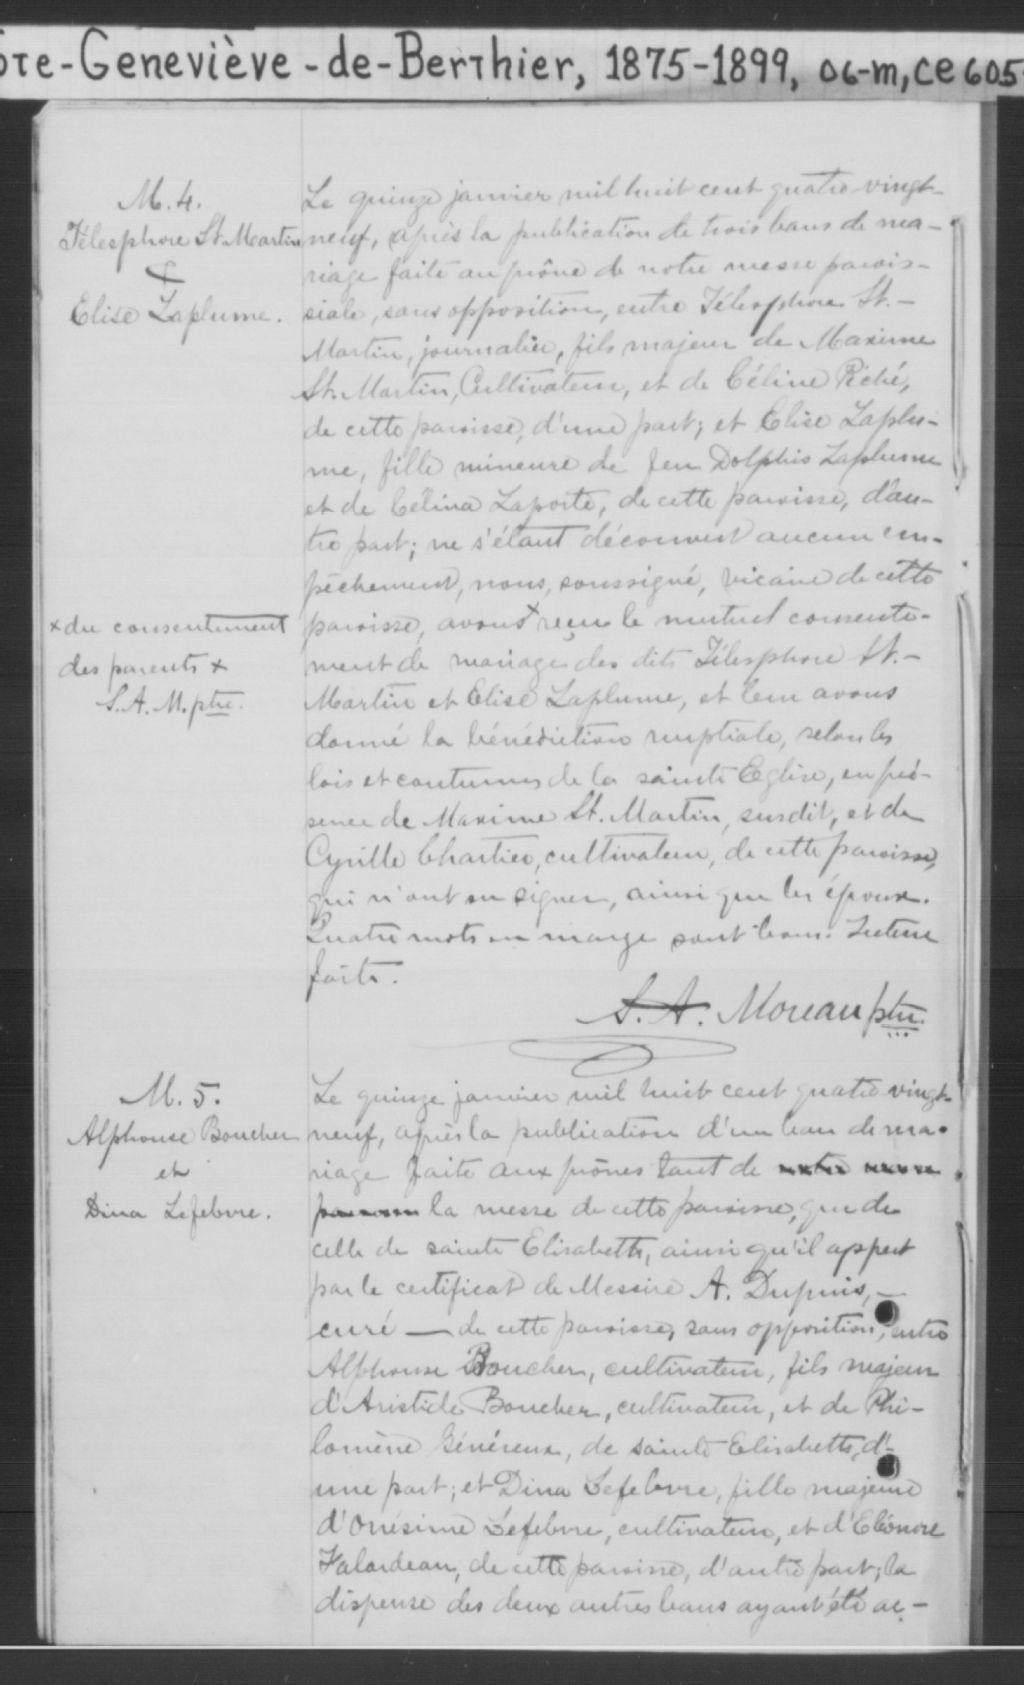 te-Geneviève-de-Berthier, 1875-1899, 06-m, ce605
M. 4.
Télesphore St. Martin
&
Elise Laplume.
Le quinze janvier mil huit cent quatre-vingt-
neuf, après la publication de trois bans de ma-
riage faite au prône de notre messe parois-
siale, sans opposition, entre Télesphore St.-
Martin, journalier, fils majeur de Maxime
St. Martin, Cultivateur, et de Céline Piché,
de cette paroisse, d'une part; et Elise Laplu-
me, fille mineure de feu Dolphis Laplume
et de Célina Laporte, de cette paroisse, d'au-
tre part; ne s'étant découvert aucun em-
pêchement, nous, soussigné, vicaire de cette
paroisse, avons x reçu le mutuel consente-
ment de mariage des dits Télesphore St.-
Martin et Elise Laplume, et leur avons
donné la bénédiction nuptiale, selon les
lois et coutumes de la sainte Eglise, en pré-
sence de Maxime St. Martin, susdit, et de
Cyrille Chartier, cultivateur, de cette paroisse,
qui n'ont su signer, ainsi que les époux.
Quatre mots en marge sont bons. Lecture
faite.
x du consentement
des parents x
S. A. M. ptre.
S. A. Moreau ptre.
M. 5.
Alphonse Boucher
et
Dina Lefebvre.
Le quinze janvier mil huit cent quatre-vingt-
neuf, après la publication d'un ban de ma-
riage faite aux prônes tant de notre messe
la messe de cette paroisse, que de
celle de sainte Elisabeth, ainsi qu'il appert
par le certificat de Messire A. Dupuis, —
curé — de cette paroisse, sans opposition, entre
Alphonse Boucher, cultivateur, fils majeur
d'Aristide Boucher, cultivateur, et de Phi-
lomène Généreux, de sainte Elisabeth, d'-
une part; et Dina Lefebvre, fille majeure
d'Onésime Lefebvre, cultivateur, et d'Eléonore
Faladeau, de cette paroisse, d'autre part; la
dispense des deux autres bans ayant été ac-